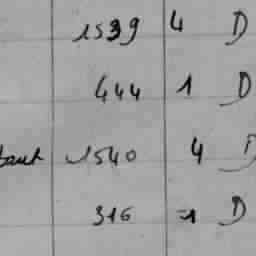 1539 4 D
444 1 D
1540 4 D
316 1 D